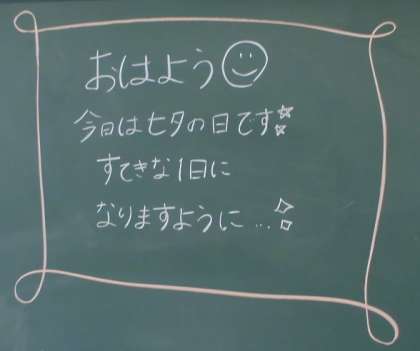 おはよう
今日は七夕の日です
すてきな1日に
なりますように…